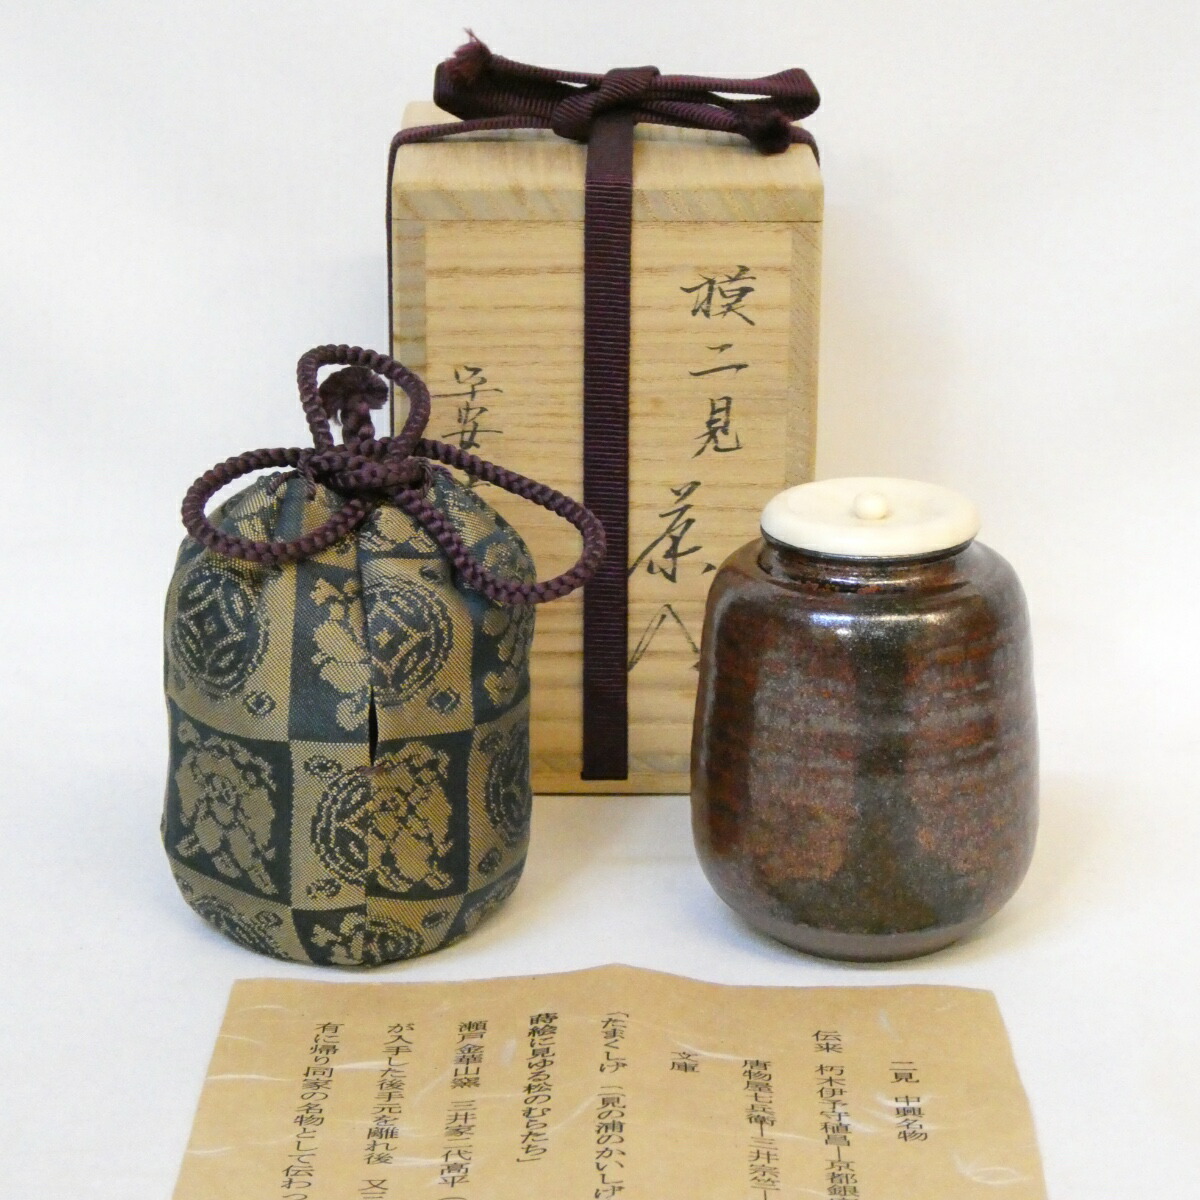 模二見
茶入
早安
二見 中興名物
伝来 朽木伊予守稙昌―京都銀
唐物屋七兵衛―三井宗竺―
文庫
「たまくしげ 二見の浦のかいしげ
蒔絵に見ゆる松のむらたち」
瀬戸金華山窯 三井家二代高平(
が入手した後手元を離れ後 又三
有に帰り同家の名物として伝わっ